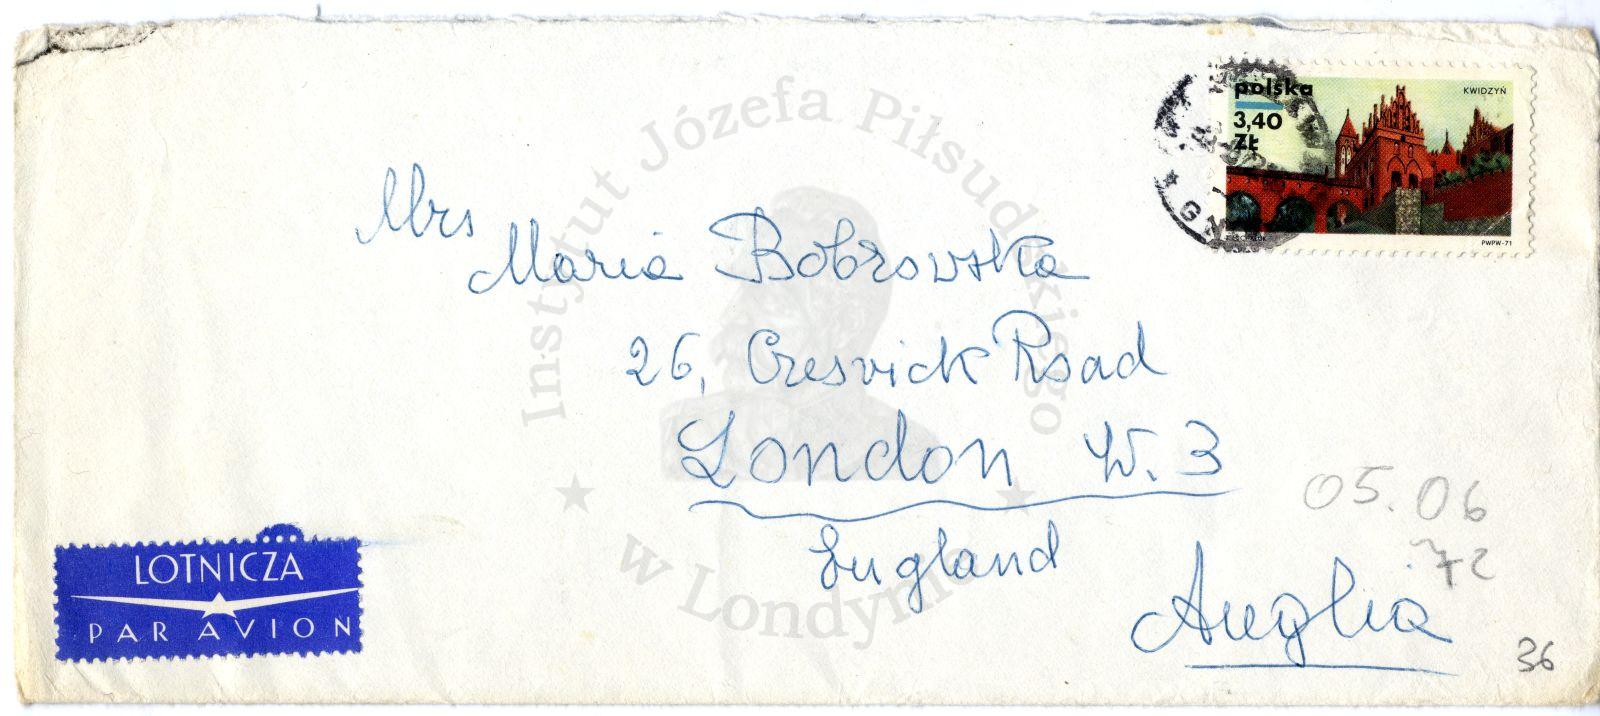 polska
3,40
Zł
KWIDZYŃ
PWPW-71
Instytut Józefa Piłsudskiego
w Londynie
Mrs
Maria Bobrowska
26, Creswick Road
London W. 3
England
Anglia
05.06
72
36
LOTNICZA
PAR AVION